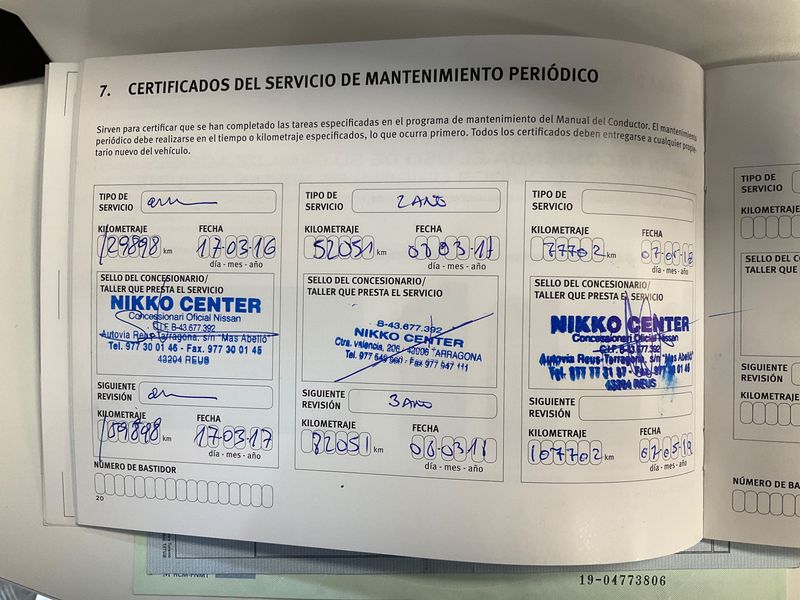 7. CERTIFICADOS DEL SERVICIO DE MANTENIMIENTO PERIÓDICO
Sirven para certificar que se han completado las tareas especificadas en el programa de mantenimiento del Manual del Conductor. El mantenimiento
periódico debe realizarse en el tiempo o kilometraje especificados, lo que ocurra primero. Todos los certificados deben entregarse a cualquier propie-
tario nuevo del vehículo.
TIPO DE
SERVICIO
KILOMETRAJE FECHA
29898 km 17-03-16
día - mes - año
SELLO DEL CONCESIONARIO/
TALLER QUE PRESTA EL SERVICIO
NIKKO CENTER
Concessionari Oficial Nissan
C.I.F. B-43.677.392
Autovia Reus-Tarragona, s/n "Mas Abelló"
Tel. 977 30 01 46 - Fax. 977 30 01 45
43204 REUS
SIGUIENTE
REVISIÓN
KILOMETRAJE FECHA
59898 km 17-03-17
día - mes - año
NÚMERO DE BASTIDOR
20
TIPO DE
SERVICIO 2 AÑO
KILOMETRAJE FECHA
52051 km 03-17
día - mes - año
SELLO DEL CONCESIONARIO/
TALLER QUE PRESTA EL SERVICIO
B-43.677.392
NIKKO CENTER
Ctra. valencia, 206 - 43006 TARRAGONA
Fax 977 547 111
SIGUIENTE
REVISIÓN 3 AÑO
KILOMETRAJE FECHA
82051 km
día - mes - año
TIPO DE
SERVICIO
KILOMETRAJE FECHA
77702 km 07-05-18
día - mes - año
SELLO DEL CONCESIONARIO/
TALLER QUE PRESTA EL SERVICIO
NIKKO CENTER
Concessionari Oficial Nissan
C.I.F. B-43.677.392
Autovia Reus-Tarragona, s/n "Mas Abelló"
43204 REUS
SIGUIENTE
REVISIÓN
KILOMETRAJE FECHA
107702 km 07-05-19
día - mes - año
TIPO DE
SERVICIO
KILOMETRAJE
SELLO DEL CO
TALLER QUE
SIGUIENTE
REVISIÓN
KILOMETRAJE
NÚMERO DE BA
19-04773806